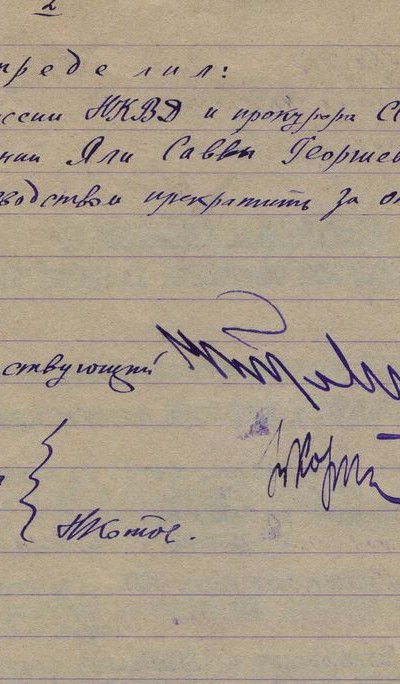 2
пределил:
ссии НКВД и прокурора С
нии Яли Саввы Георгиев
водством прекратить за о
ствующий
НКотов.